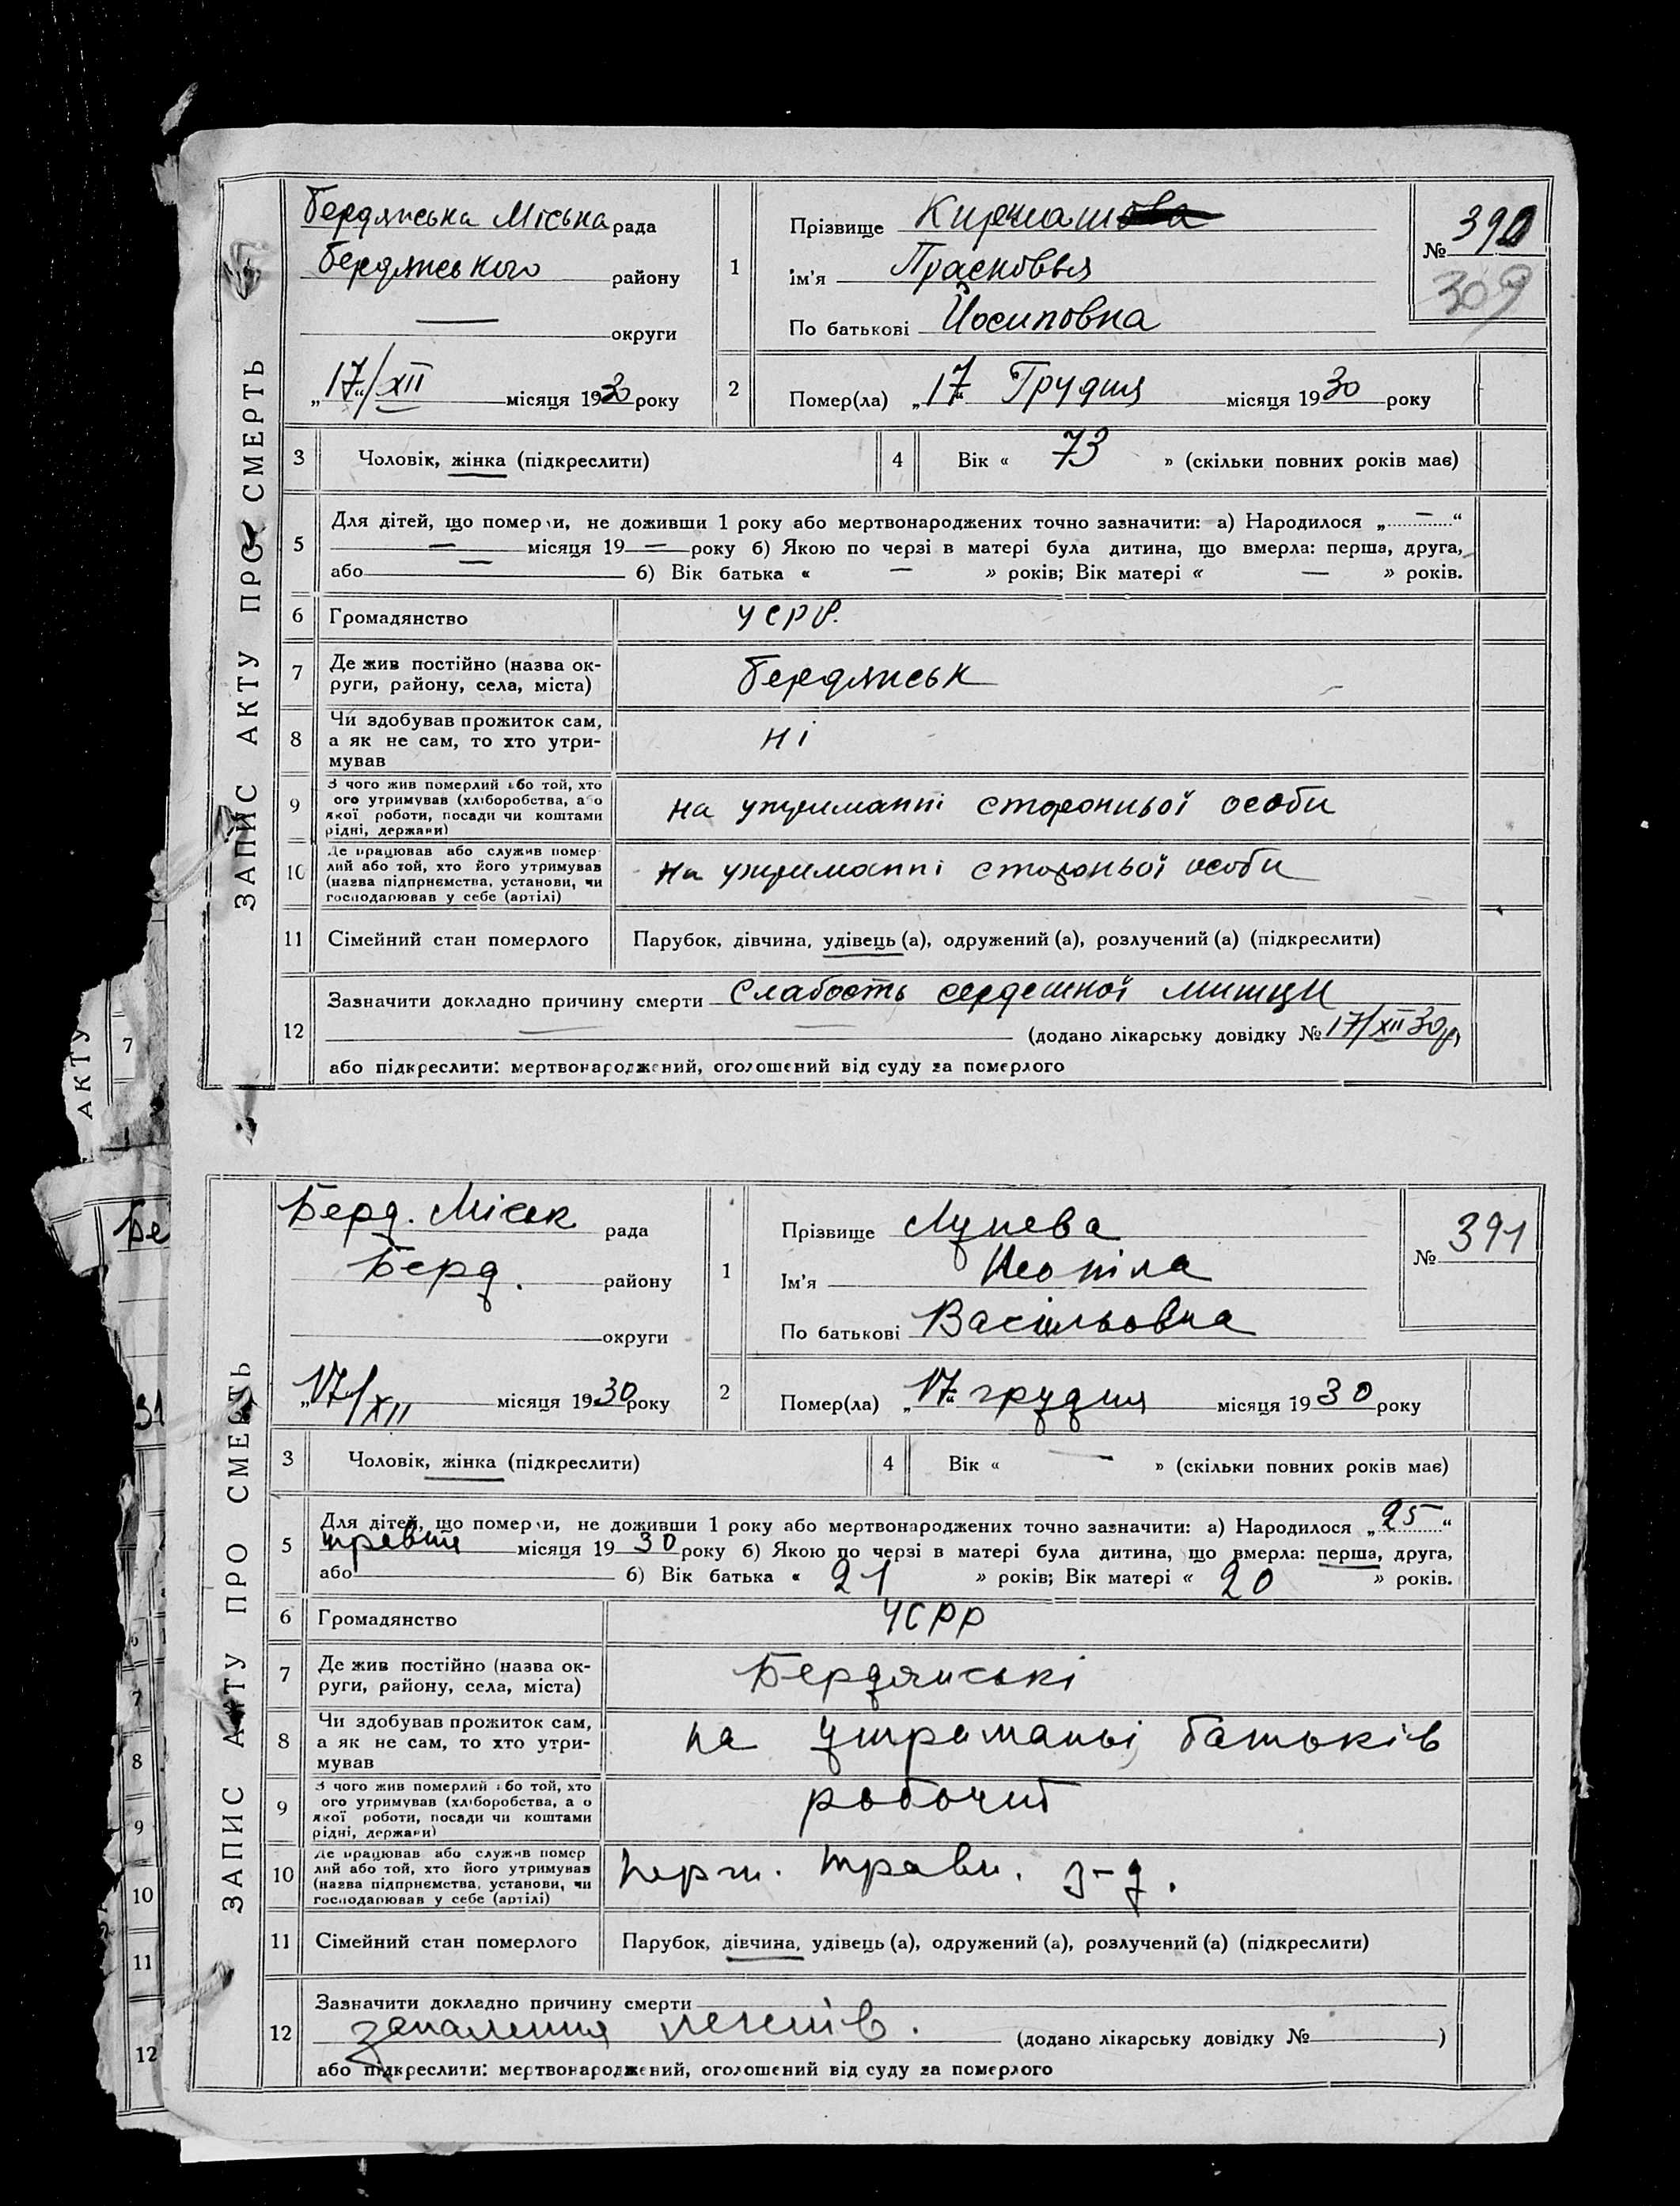 ЗАПИС АКТУ ПРО СМЕРТЬ
Бердянська Міська рада
Бердянського району
— округи
„17“/XII місяця 1930 року
1
Прізвище
Ім'я Прасковья
По батькові Йосиповна
№ 390
309
2
Помер(ла) „17“ Грудня місяця 1930 року
3 Чоловік, жінка (підкреслити)
4 Вік « 73 » (скільки повних років має)
5 Для дітей, що померли, не доживши 1 року або мертвонароджених точно зазначити: а) Народилося „ — “
— місяця 19 — року б) Якою по черзі в матері була дитина, що вмерла: перша, друга,
або — б) Вік батька « — » років; Вік матері « — » років.
6 Громадянство УСРР.
7 Де жив постійно (назва ок-
руги, району, села, міста) Бердянськ
8 Чи здобував прожиток сам,
а як не сам, то хто утри-
мував ні
9 З чого жив померлий або той, хто
ого утримував (хліборобства, або
якої роботи, посади чи коштами
рідні, держави) на утриманні сторонньої особи
10 Де працював або служив помер
лий або той, хто його утримував
(назва підприємства, установи, чи
господарював у себе (артілі) на утриманні сторонньої особи
11 Сімейний стан померлого Парубок, дівчина, удівець (а), одружений (а), розлучений (а) (підкреслити)
12 Зазначити докладно причину смерти Слабость сердешної мишци
— — (додано лікарську довідку № 17/XII 30р)
або підкреслити: мертвонароджений, оголошений від суду за померлого
ЗАПИС АКТУ ПРО СМЕРТЬ
Берд. Міськ рада
Берд. району
округи
„17“/XII місяця 1930 року
1
Прізвище Лунева
Ім'я Неоніла
По батькові Васільовна
№ 391
2
Помер(ла) „17“ грудня місяця 1930 року
3 Чоловік, жінка (підкреслити)
4 Вік « — » (скільки повних років має)
5 Для дітей, що померли, не доживши 1 року або мертвонароджених точно зазначити: а) Народилося „25“
травня місяця 1930 року б) Якою по черзі в матері була дитина, що вмерла: перша, друга,
або б) Вік батька « 21 » років; Вік матері « 20 » років.
6 Громадянство УСРР
7 Де жив постійно (назва ок-
руги, району, села, міста) Бердянські
8 Чи здобував прожиток сам,
а як не сам, то хто утри-
мував на утриманьі батьків
9 З чого жив померлий або той, хто
ого утримував (хліборобства, а о
якої роботи, посади чи коштами
рідні, держави) робочий
10 Де працював або служив помер
лий або той, хто його утримував
(назва підприємства, установи, чи
господарював у себе (артілі) Перш. Травн. з-д.
11 Сімейний стан померлого Парубок, дівчина, удівець (а), одружений (а), розлучений (а) (підкреслити)
12 Зазначити докладно причину смерти
запалення легенів. (додано лікарську довідку № )
або підкреслити: мертвонароджений, оголошений від суду за померлого
АКТУ
7
Бе
31
7
8
9
10
11
12